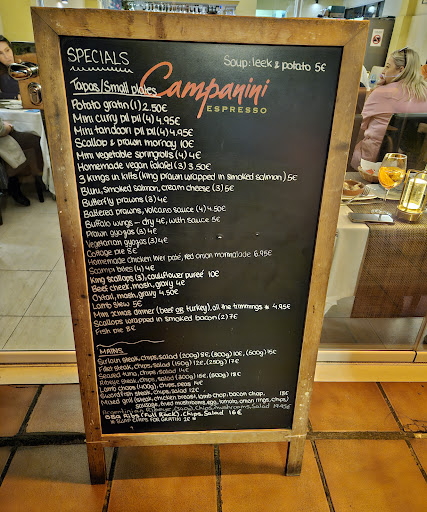 SPECIALS
Soup: leek & potato 5€
Campanini
ESPRESSO
Tapas/Small plates
Potato gratin (1) 2.50€
Mini curry pil pil (4) 4.95€
Mini tandoori pil pil (4) 4.95€
Scallop & prawn mornay 10€
Mini vegetable springrolls (4) 4€
Homemade vegan falafel (3) 3.50€
3 kings in kilts (king prawn wrapped in smoked salmon) 5€
Blini, smoked salmon, cream cheese (3) 5€
Butterfly prawns (3) 4€
Battered prawns, volcano sauce (4) 4.50€
Buffalo wings - dry 4€, with sauce 5€
Prawn gyozas (3) 4€
Vegetarian gyozas (3) 4€
Cottage pie 8€
Homemade chicken liver paté, red onion marmalade 6.95€
Scampi bites (4) 4€
King scallops (3), cauliflower pureé 10€
Beef cheek, mash, gravy 4€
Oxtail, mash, gravy 4.50€
Lamb stew 5€
Mini xmas dinner (beef or turkey), all the trimmings * 4.95€
Scallops wrapped in smoked bacon (2) 7€
Fish pie 8€
MAINS
Sirloin steak, chips, salad (200g) 8€, (300g) 10€, (500g) 15€
Fillet steak, chips, salad (150g) 12€, (250g) 17€
Seared tuna, chips, salad 14€
Ribeye steak, chips, salad (300g) 15€, (500g) 18€
Lamb chops (400g), chips, peas 14€
Swordfish steak, chips, salad 12€
Mixed grill (steak, chicken breast, lamb chop, bacon chop, 18€
sausage, fried mushrooms, egg, tomato, onion rings, chips)
Argentinian Ribeye (300g), Chips, mushrooms, Salad 19.95€
BBQ Ribs (Full Rack), Chips, Salad 16€
* SWAP CHIPS FOR GRATIN 2€ *